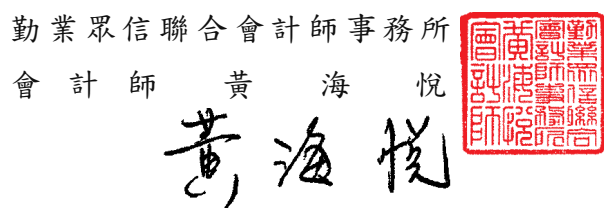 勤業眾信聯合會計師事務所
會計師 黃海悅
黃海悅
勤業眾信聯合
會計師事務所
黃海悅
會計師